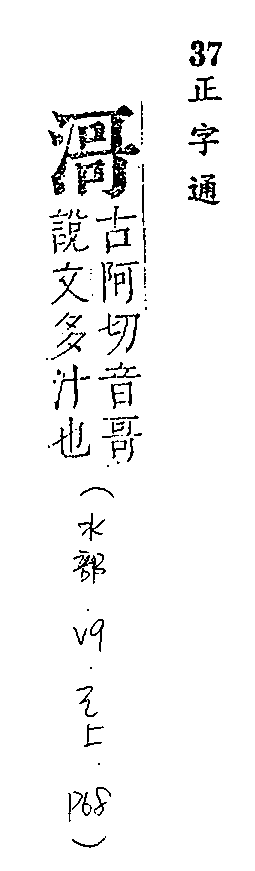 37正字通
滒
古阿切音哥
說文多汁也
(水部.V9.巳上.P68)